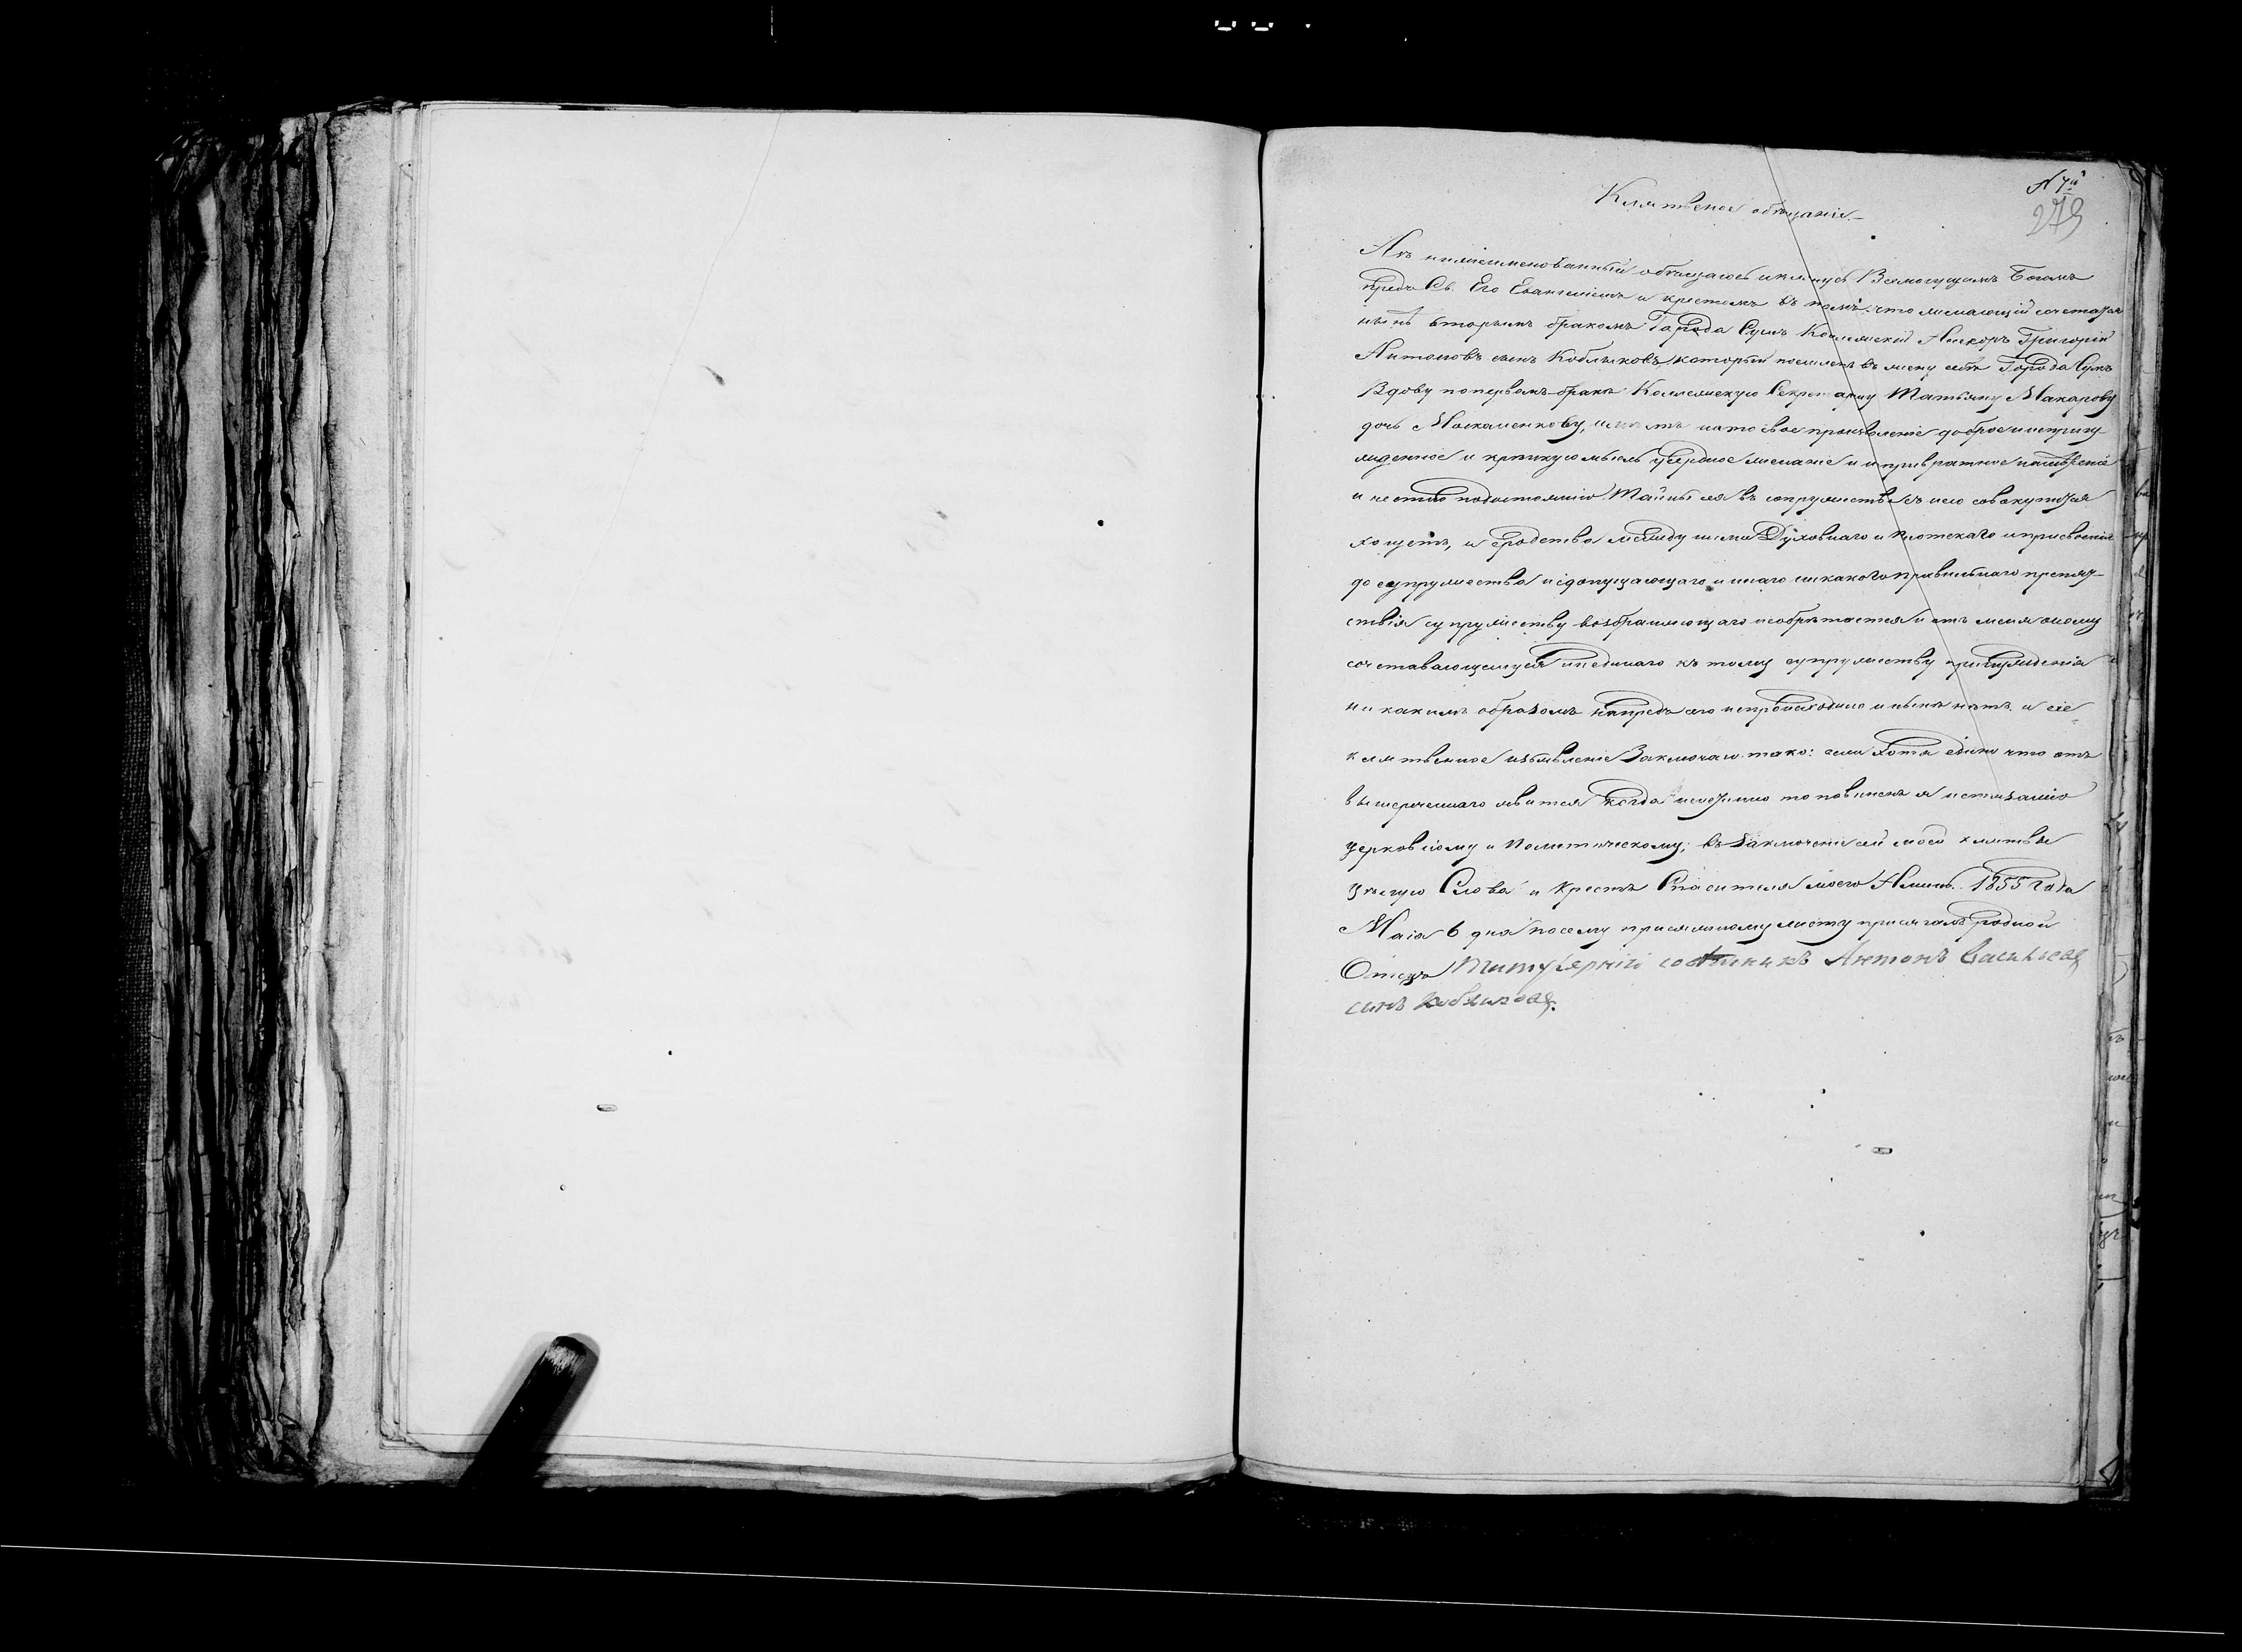 № 7й
279
Клятвеное обѣщаніе.
Азъ нижеименованный обѣщаюсь и клянусь Всемогущимъ Богомъ
предъ Св. Его Евангеліемъ и крестомъ въ томъ, что желающій сочетатся
нынѣ вторымъ бракомъ Города Сумъ Колежскій Ассесоръ Григорій
Антоновъ сынъ Кобл҃ыковъ, который поемлетъ въ жену себѣ Города Сумъ
Вдову попервомъ бракѣ Коллежскую Секретаршу Матвяну Макарову
дочь Москаленкову, имѣетъ нато свое произволеніе доброе и неприну
жденное и крѣпкую мысль усердное желаніе и непривратное намѣреніе
и честно подостоянію Тайны ея въ сопружество съ нею совокупится
хощетъ, и сродства между ими Духовнаго и плотскаго и присвоенія
до супружества недопущающаго и инаго никакого правильнаго препят-
ствія супружеству возбраняющаго необрѣтается и отъ меня оному
сочетавающемуся ни единаго къ тому супружеству принужденія
ни какимъ образомъ напредъ сего непроисходило и нынѣ нѣтъ. и сіе
клятвенное изъявленіе Заключаю тако: если хотя едино что отъ
вышереченнаго явится когда неистинно то повиненъ я истязанію
церковному и Политическому; въ заключеніи сей моей клятвы
Цѣлую Слова и Крестъ Спасителя моего Аминь. 1855 года
Маія 6 дня посему присяжному листу присягалъ родной
Отецъ Титулярній совѣтникъ Антонъ Васильевъ
синъ Кобликовъ.